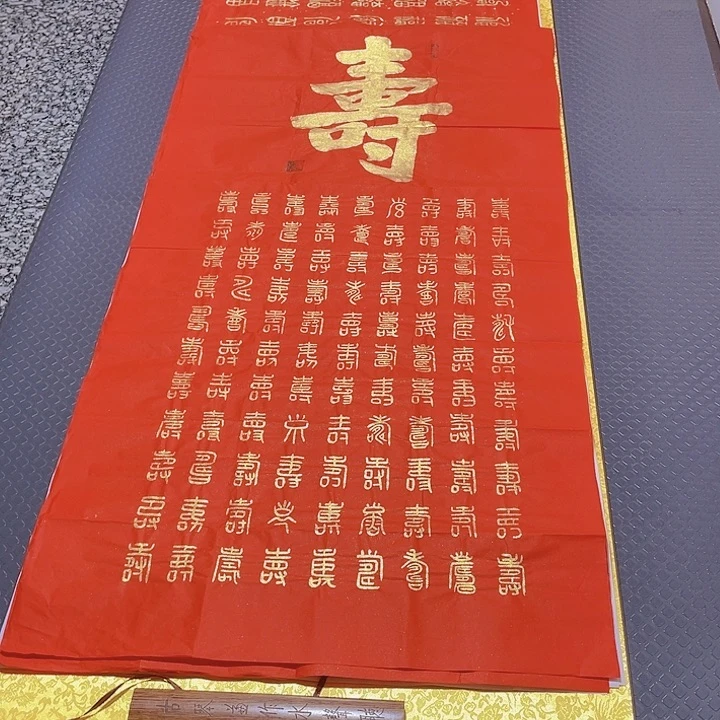 壽
壽壽壽壽壽壽壽壽壽壽壽
壽壽壽壽壽壽壽壽壽壽壽
壽壽壽壽壽壽壽壽壽壽壽
壽壽壽壽壽壽壽壽壽壽壽
壽壽壽壽壽壽壽壽壽壽壽
壽壽壽壽壽壽壽壽壽壽壽
壽壽壽壽壽壽壽壽壽壽壽
壽壽壽壽壽壽壽壽壽壽壽
壽壽壽壽壽壽壽壽壽壽壽
作水聲聽